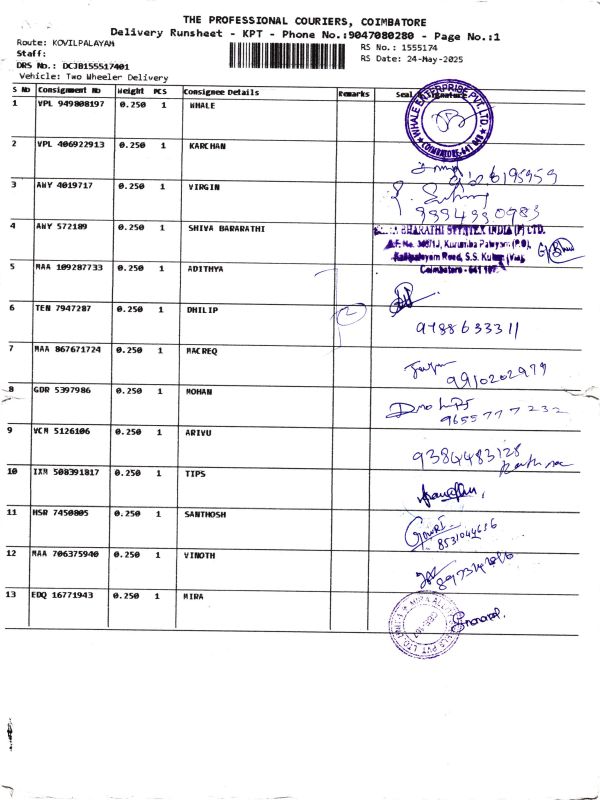 THE PROFESSIONAL COURIERS, COIMBATORE
Delivery Runsheet - KPT - Phone No.:9047080280 - Page No.:1
Route: KOVILPALAYAM
RS No.: 1555174
Staff:
RS Date: 24-May-2025
DRS No.: DCJB155517401
Vehicle: Two Wheeler Delivery
S No Consignment No Weight PCS Consignee Details Remarks Seal & Signature
1 VPL 949808197 0.250 1 WHALE
WHALE ENTERPRISE PVT. LTD.
COIMBATORE-641
2 VPL 406922913 0.250 1 KARCHAN
3 ANY 4019717 0.250 1 VIRGIN
4 ANY 572189 0.250 1 SHIVA BARARATHI
BHARATHI SYNTEX INDIA (P) LTD.
S.F. No. 308/1J, Kurumba Palayam (P.O),
Kalipalayam Road, S.S. Kulam (Via),
Coimbatore - 641 107.
5 MAA 109287733 0.250 1 ADITHYA
6 TEN 7947287 0.250 1 DHILIP
2
9788633311
7 MAA 867671724 0.250 1 MACREQ
9910202979
8 GDR 5397986 0.250 1 MOHAN
9655777232
9 VCM 5126106 0.250 1 ARIVU
9384483128
10 IXM 508391817 0.250 1 TIPS
11 HSR 7450805 0.250 1 SANTHOSH
Gowri
8531044656
12 MAA 706375940 0.250 1 VINOTH
13 EDQ 16771943 0.250 1 MIRA